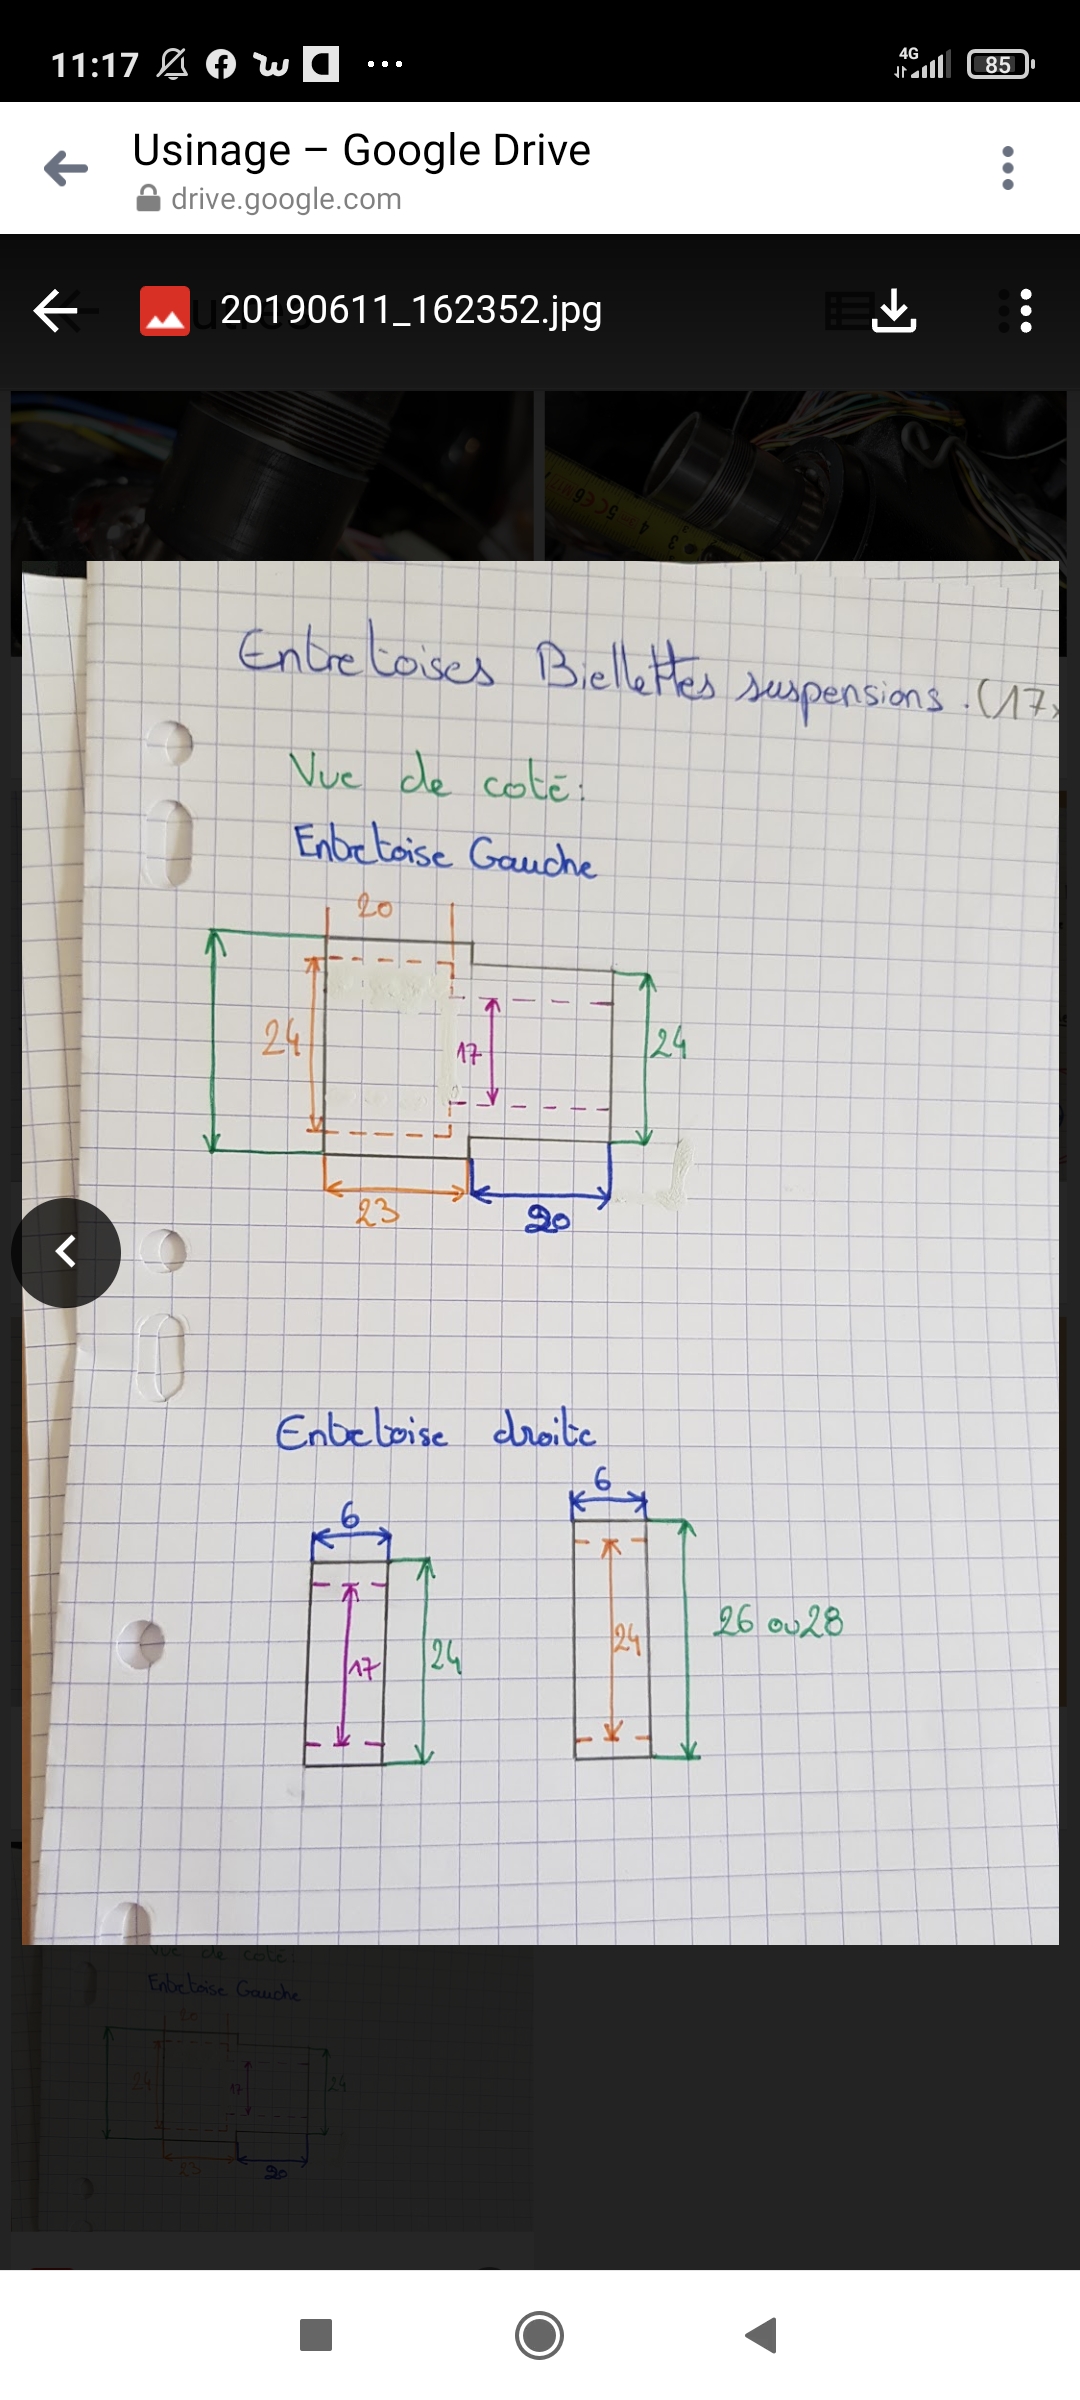 11:17
4G
85
Usinage – Google Drive
drive.google.com
20190611_162352.jpg
Entretoises Biellettes suspensions. (17x
Vue de coté:
Entretoise Gauche
20
24
17
24
23
20
Entretoise droite
6
6
17
24
24
26 ou 28
Vue de coté:
Entretoise Gauche
20
24
17
24
23
20